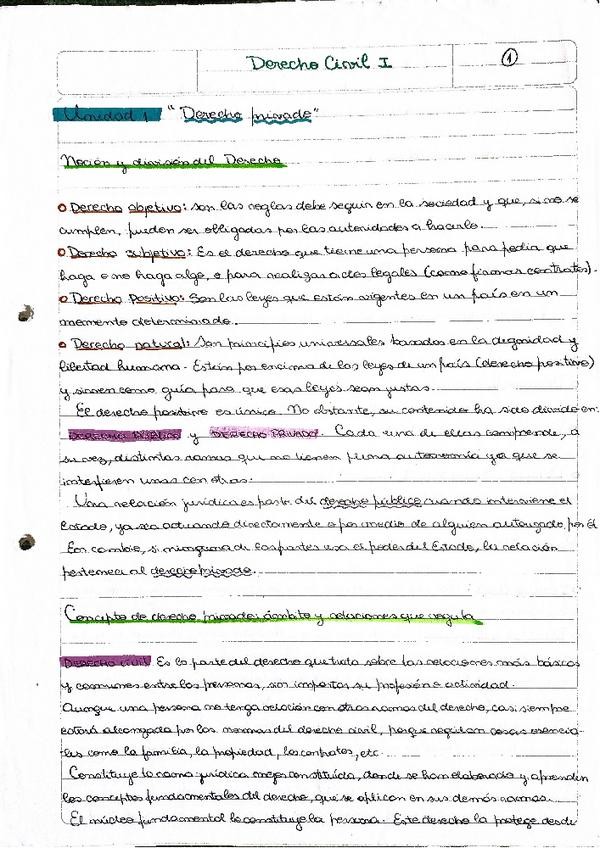 Derecho Civil I
1
Unidad 1 "Derecho privado"
Noción y división del Derecho
Derecho objetivo: son las reglas debe seguir en la sociedad y que, si no se
cumplen, pueden ser obligadas por las autoridades a hacerlo.
Derecho subjetivo: Es el derecho que tiene una persona para pedir que
haga o no haga algo, o para realizar actos legales (como firmar contratos).
Derecho Positivo: Son las leyes que están vigentes en un país en un
momento determinado.
Derecho natural: Son principios universales basados en la dignidad y
libertad humana. Están por encima de las leyes de un país (derecho positivo)
y sirven como guía para que esas leyes sean justas.
El derecho positivo es único. No obstante, su contenido ha sido dividido en:
DERECHO PÚBLICO y DERECHO PRIVADO. Cada una de ellas comprende, a
su vez, distintas ramas que no tienen plena autonomía ya que se
interfieren unas con otras.
Una relación jurídica es parte del derecho público cuando interviene el
Estado, ya sea actuando directamente o por medio de alguien autorizado por él
En cambio, si ninguna de las partes usa el poder del Estado, la relación
pertenece al derecho privado.
Concepto de derecho privado: ámbito y relaciones que regula
DERECHO CIVIL Es la parte del derecho que trata sobre las relaciones más básicas
y comunes entre las personas, sin importar su profesión o actividad.
Aunque una persona no tenga relación con otras normas del derecho, casi siempre
estará alcanzada por las normas del derecho civil, porque regulan cosas esencia-
les como la familia, la propiedad, los contratos, etc.
Constituye la rama jurídica mejor constituida, donde se han elaborado y aprenden
los conceptos fundamentales del derecho, que se aplican en sus demás normas.
El núcleo fundamental lo constituye la persona. Este derecho la protege desde